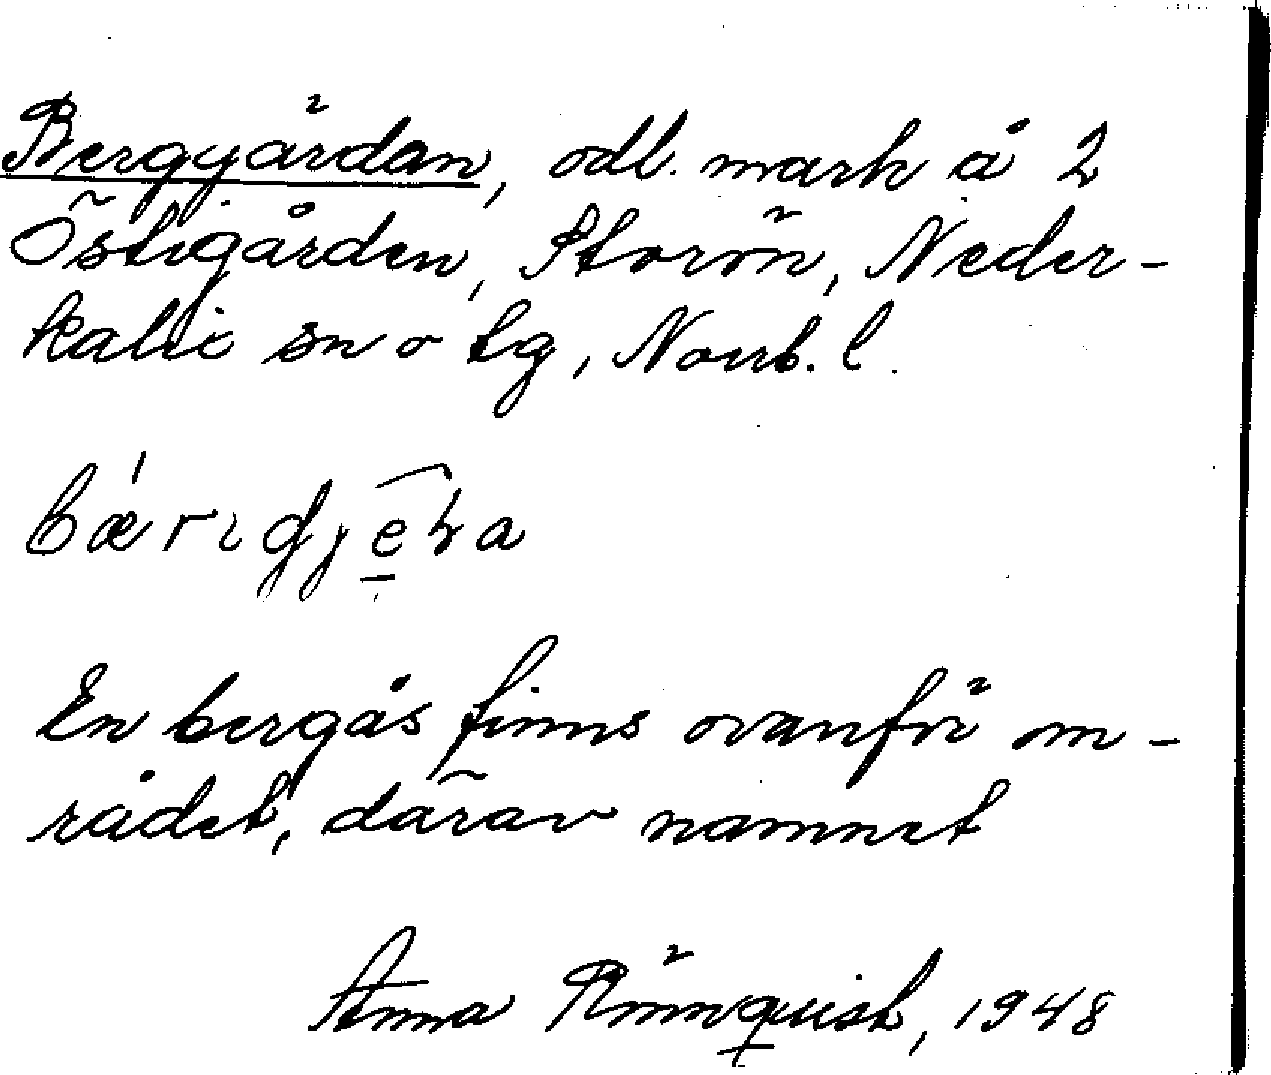 Berggärdan, odl. mark å 2
Östigården, Storön, Neder-
kalix sn o tg, Norrb. l.
En bergås finns ovanför om-
rådet, därav namnet
Anna Rönnquist, 1948